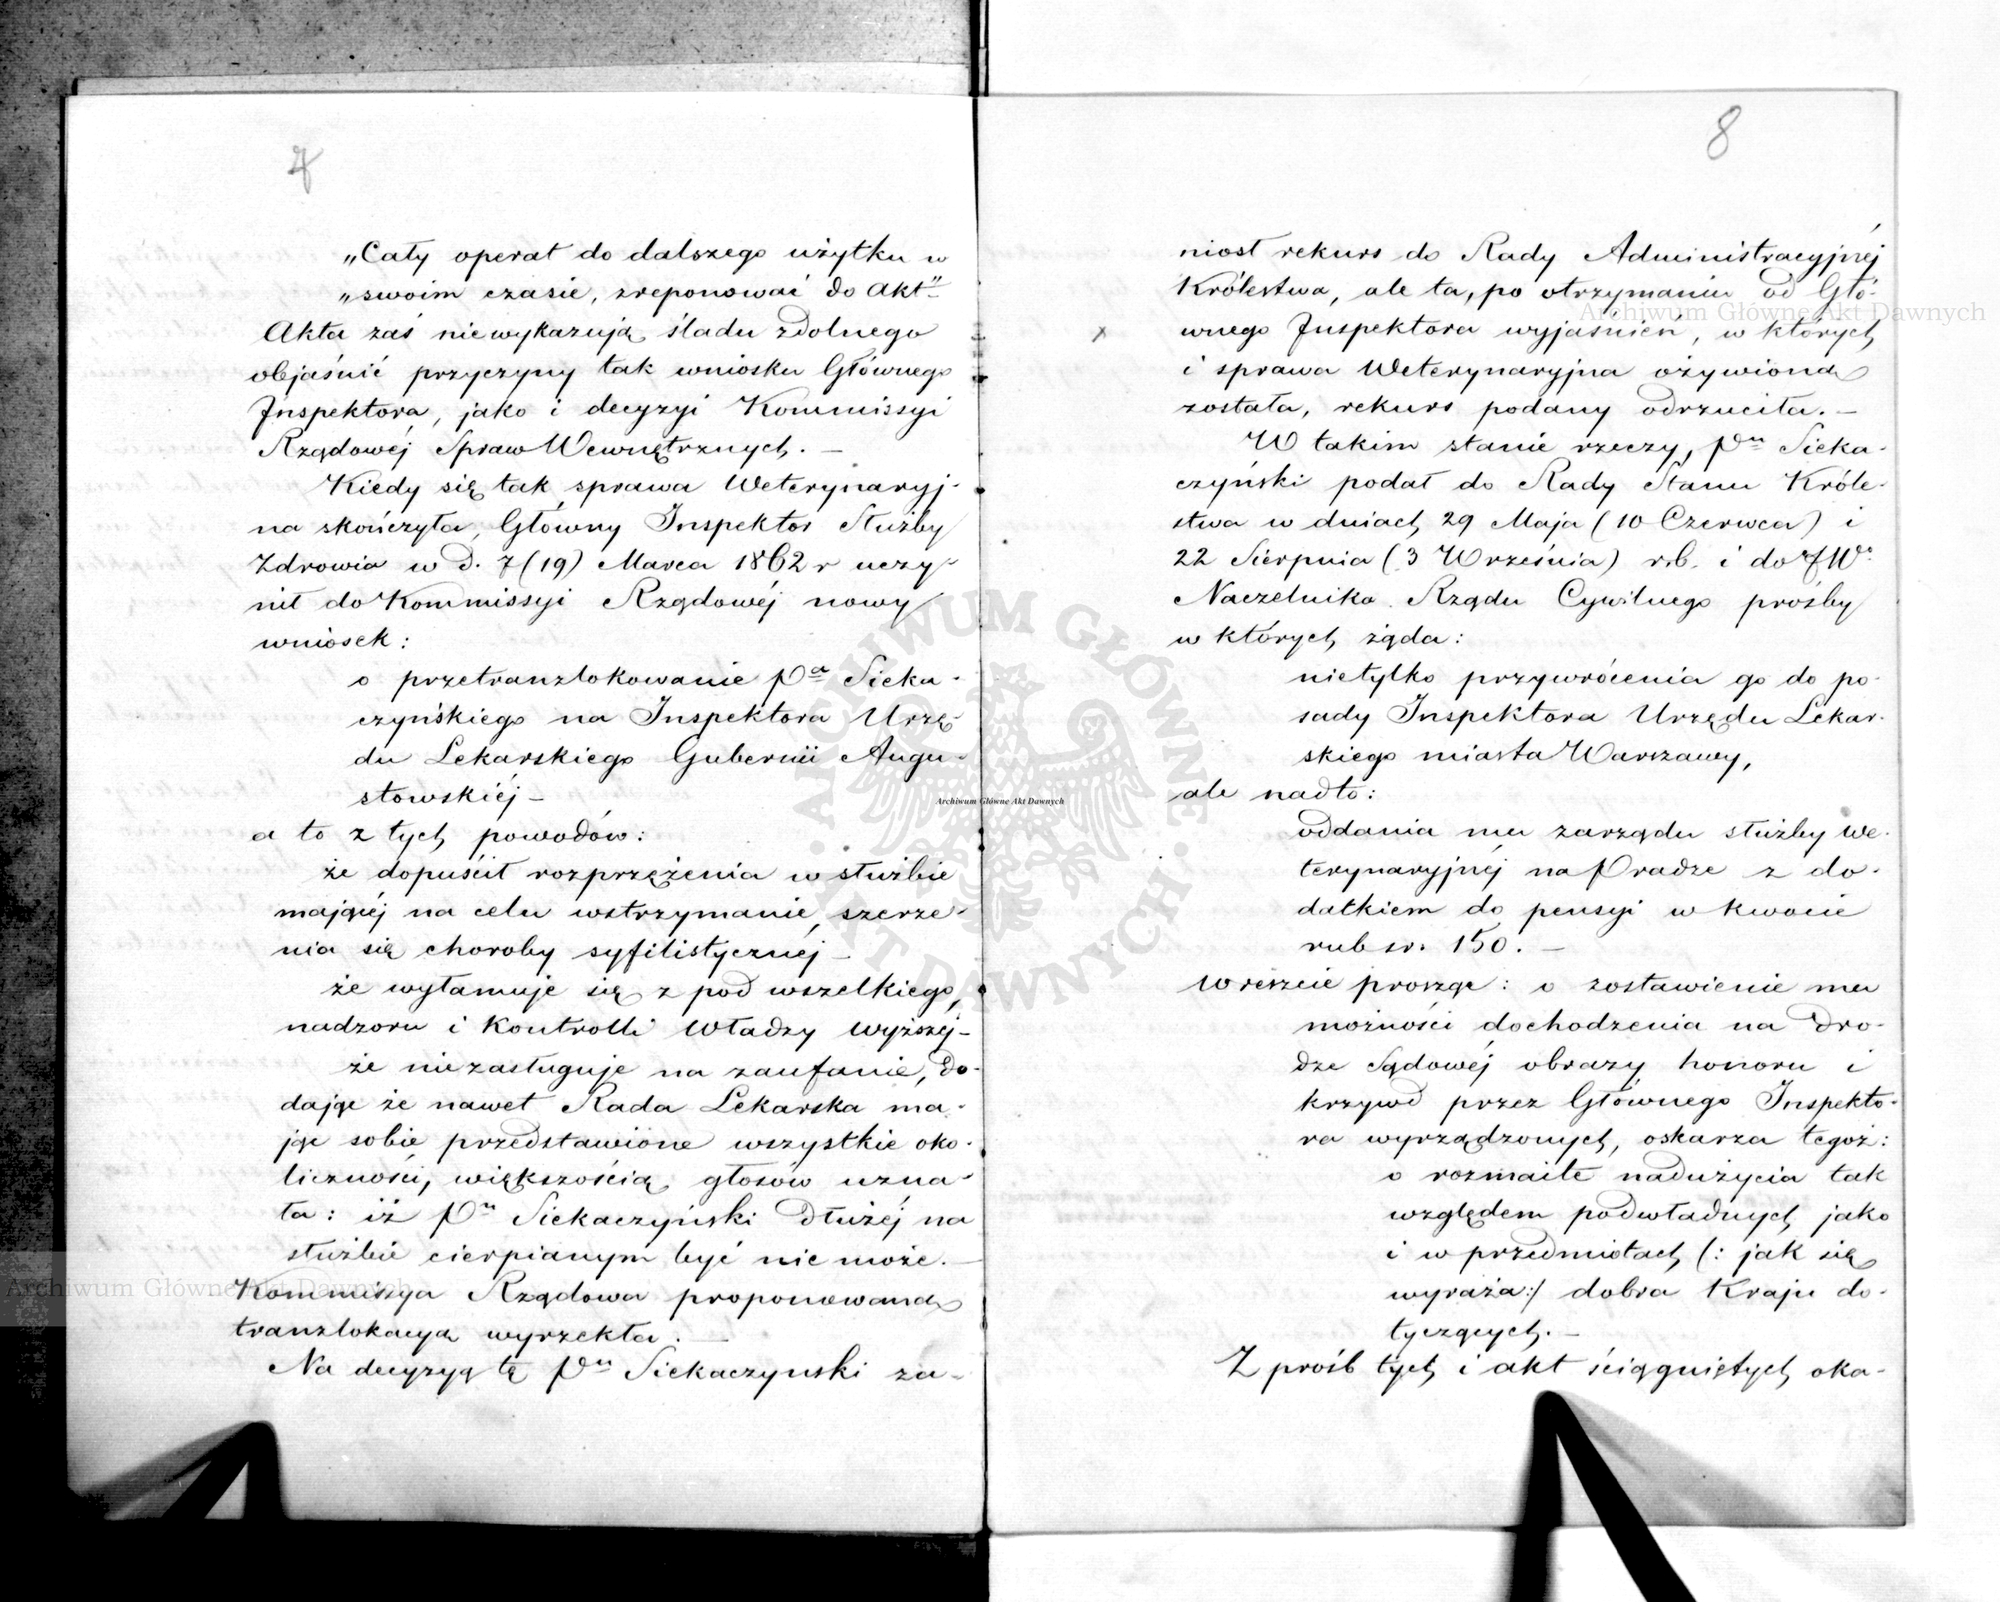 7
„Cały operat do dalszego użytku w
„swoim czasie, zreponować do Akt"
Akta zaś niewykazują śladu zdolnego
objaśnić przyczyny tak wniosku Głównego
Inspektora, jako i decyzyi Kommissyi
Rządowéj Spraw Wewnętrznych. —
Kiedy się tak sprawa Weterynaryj-
na skończyła, Główny Inspektor Służby
Zdrowia w d. 7 (19) Marca 1862 r uczy-
nił do Kommissyi Rządowéj nowy
wniosek:
o przetranzlokowanie Pa Sieka-
czyńskiego na Inspektora Urzę-
du Lekarskiego Gubernii Augu-
stowskiéj —
a to z tych powodów:
że dopuścił rozprzężenia w służbie
mającéj na celu wstrzymanie, szerze-
nia się choroby syfilistycznéj —
że wyłamuje się z pod wszelkiego,
nadzoru i kontrolli Władzy wyższéj —
że niezasługuje na zaufanie, do-
dając że nawet Rada Lekarska ma-
jąc sobie przedstawione wszystkie oko-
liczności, większością głosów uzna-
ła: iż Pn Siekaczyński dłużéj na
służbie cierpianym być nie może. —
Kommissya Rządowa proponowaną
tranzlokacyą wyrzekła. —
Na decyzyą tę Pn Siekaczynski za-
8
niosł rekurs do Rady Administracyjnéj
Królestwa, ale ta, po otrzymaniu od Głó-
wnego Inspektora wyjaśnień, w których
i sprawa Weterynaryjna ożywioną
została, rekurs podany odrzuciła. —
W takim stanie rzeczy, Pn Sieka-
czyński podał do Rady Stanu Króle-
stwa w dniach 29 Maja (10 Czerwca) i
22 Sierpnia (3 Września) r.b. i do JWo
Naczelnika Rządu Cywilnego prośby
w których żąda:
nietylko przywrócenia go do po-
sady Inspektora Urzędu Lekar-
skiego miasta Warszawy,
ale nadto:
oddania mu zarządu służby we-
terynaryjnéj na Pradze z do-
datkiem do pensyi w kwocie
rub sr. 150. —
Wreszcie prosząc: o zostawienie mu
możności dochodzenia na dro-
dze Sądowéj obrazy honoru i
krzywd przez Głównego Inspekto-
ra wyrządzonych, oskarża tegoż:
o rozmaite nadużycia tak
względem podwładnych jako
i w przedmiotach (: jak się
wyraża:) dobra Kraju do-
tyczących. —
Z próśb tych i akt ściągniętych oka-
Archiwum Główne Akt Dawnych
Archiwum Główne Akt Dawnych
Archiwum Główne Akt Dawnych
ARCHIWUM GŁÓWNE AKT DAWNYCH